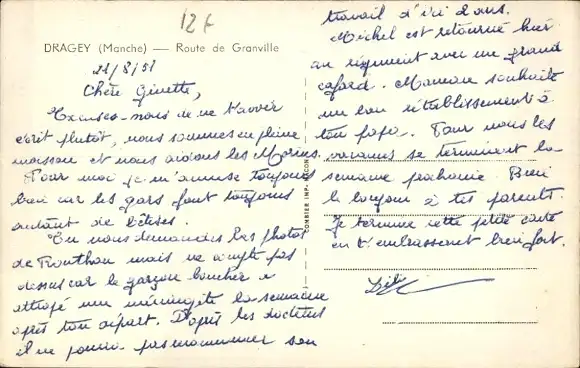 12F
DRAGEY (Manche) — Route de Granville
21/8/51
Chère Ginette,
Excuses-nous de ne t'avoir
écrit plutôt, nous sommes en pleine
moisson et nous aidons les
Pour moi je m'amuse toujours
bien car les gars font toujours
autant de bêtises.
Tu nous demandes les photos
de mais ne compte pas
dessus car le garçon boucher a
attrapé une méningite la semaine
après ton départ. D'après les docteurs
il ne pourra pas recommencer son
travail d'ici 2 ans.
Michel est retourné hier
au régiment avec un grand
cafard. Maman souhaite
un bon rétablissement à
ton papa. Pour nous les
vacances se terminent la
semaine prochaine. Bien
le bonjour à tes parents.
Je termine cette petite carte
en t'embrassant bien fort.
COMBIER IMP. MACON